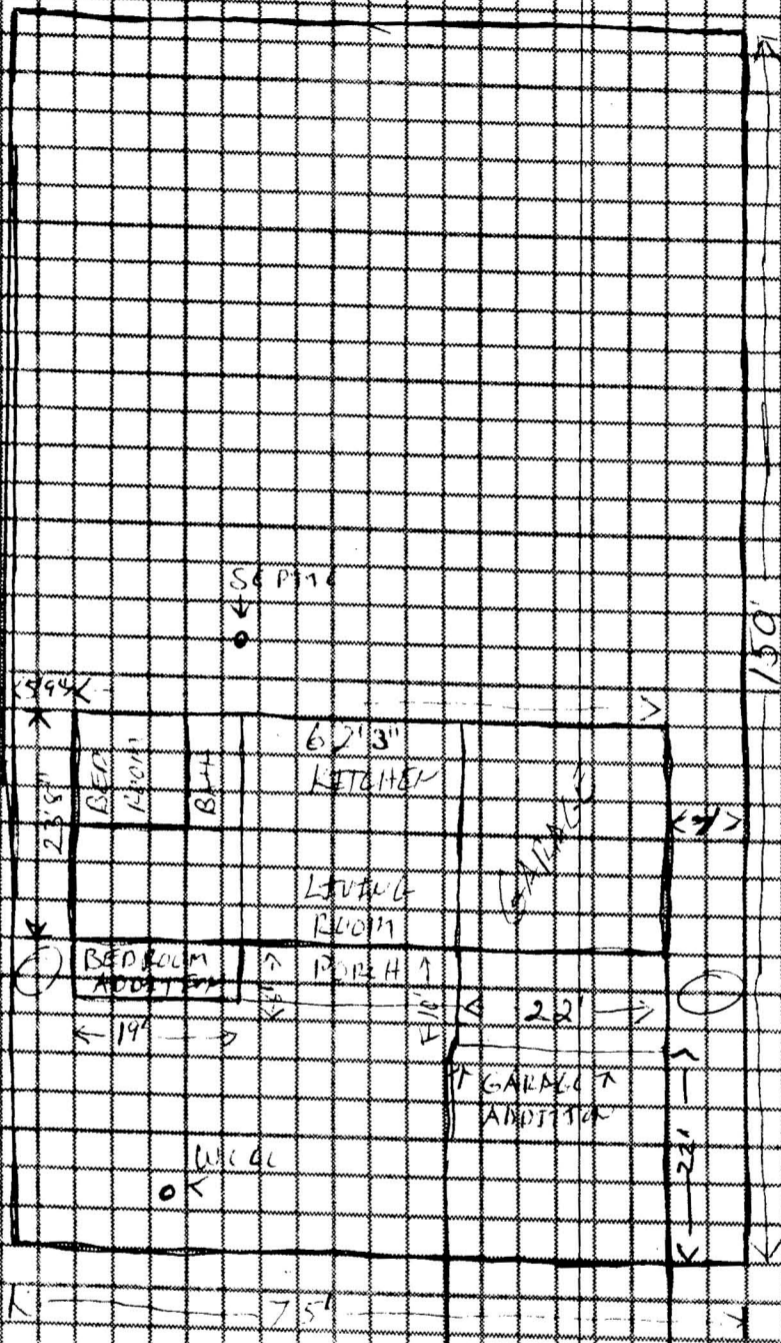 SEPTIC
150'
62'3"
KITCHEN
BED
ROOM
BATH
23'8"
GARAGE
LIVING
ROOM
BEDROOM
ADDITION
PORCH
6'
10'
22'
19'
GARAGE
ADDITION
WELL
22'
75'